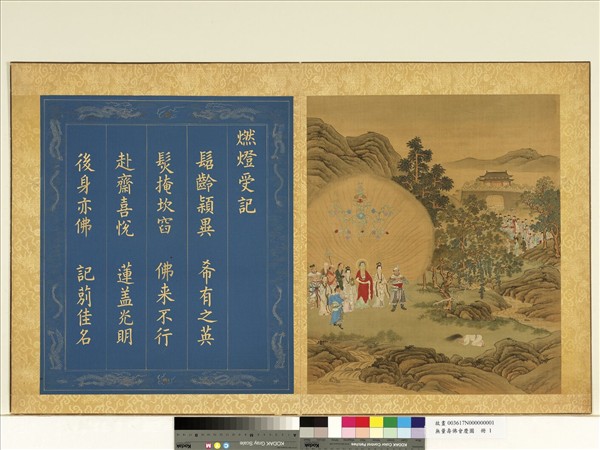 燃燈受記
髫齡穎異　希有之英
髮掩坎窞　佛来不行
赴齋喜悅　蓮盖光明
後身亦佛　記莂佳名
故畫003617N000000001
無量壽佛會慶圖　冊 1
KODAK Gray Scale
KODAK Color Control Patches